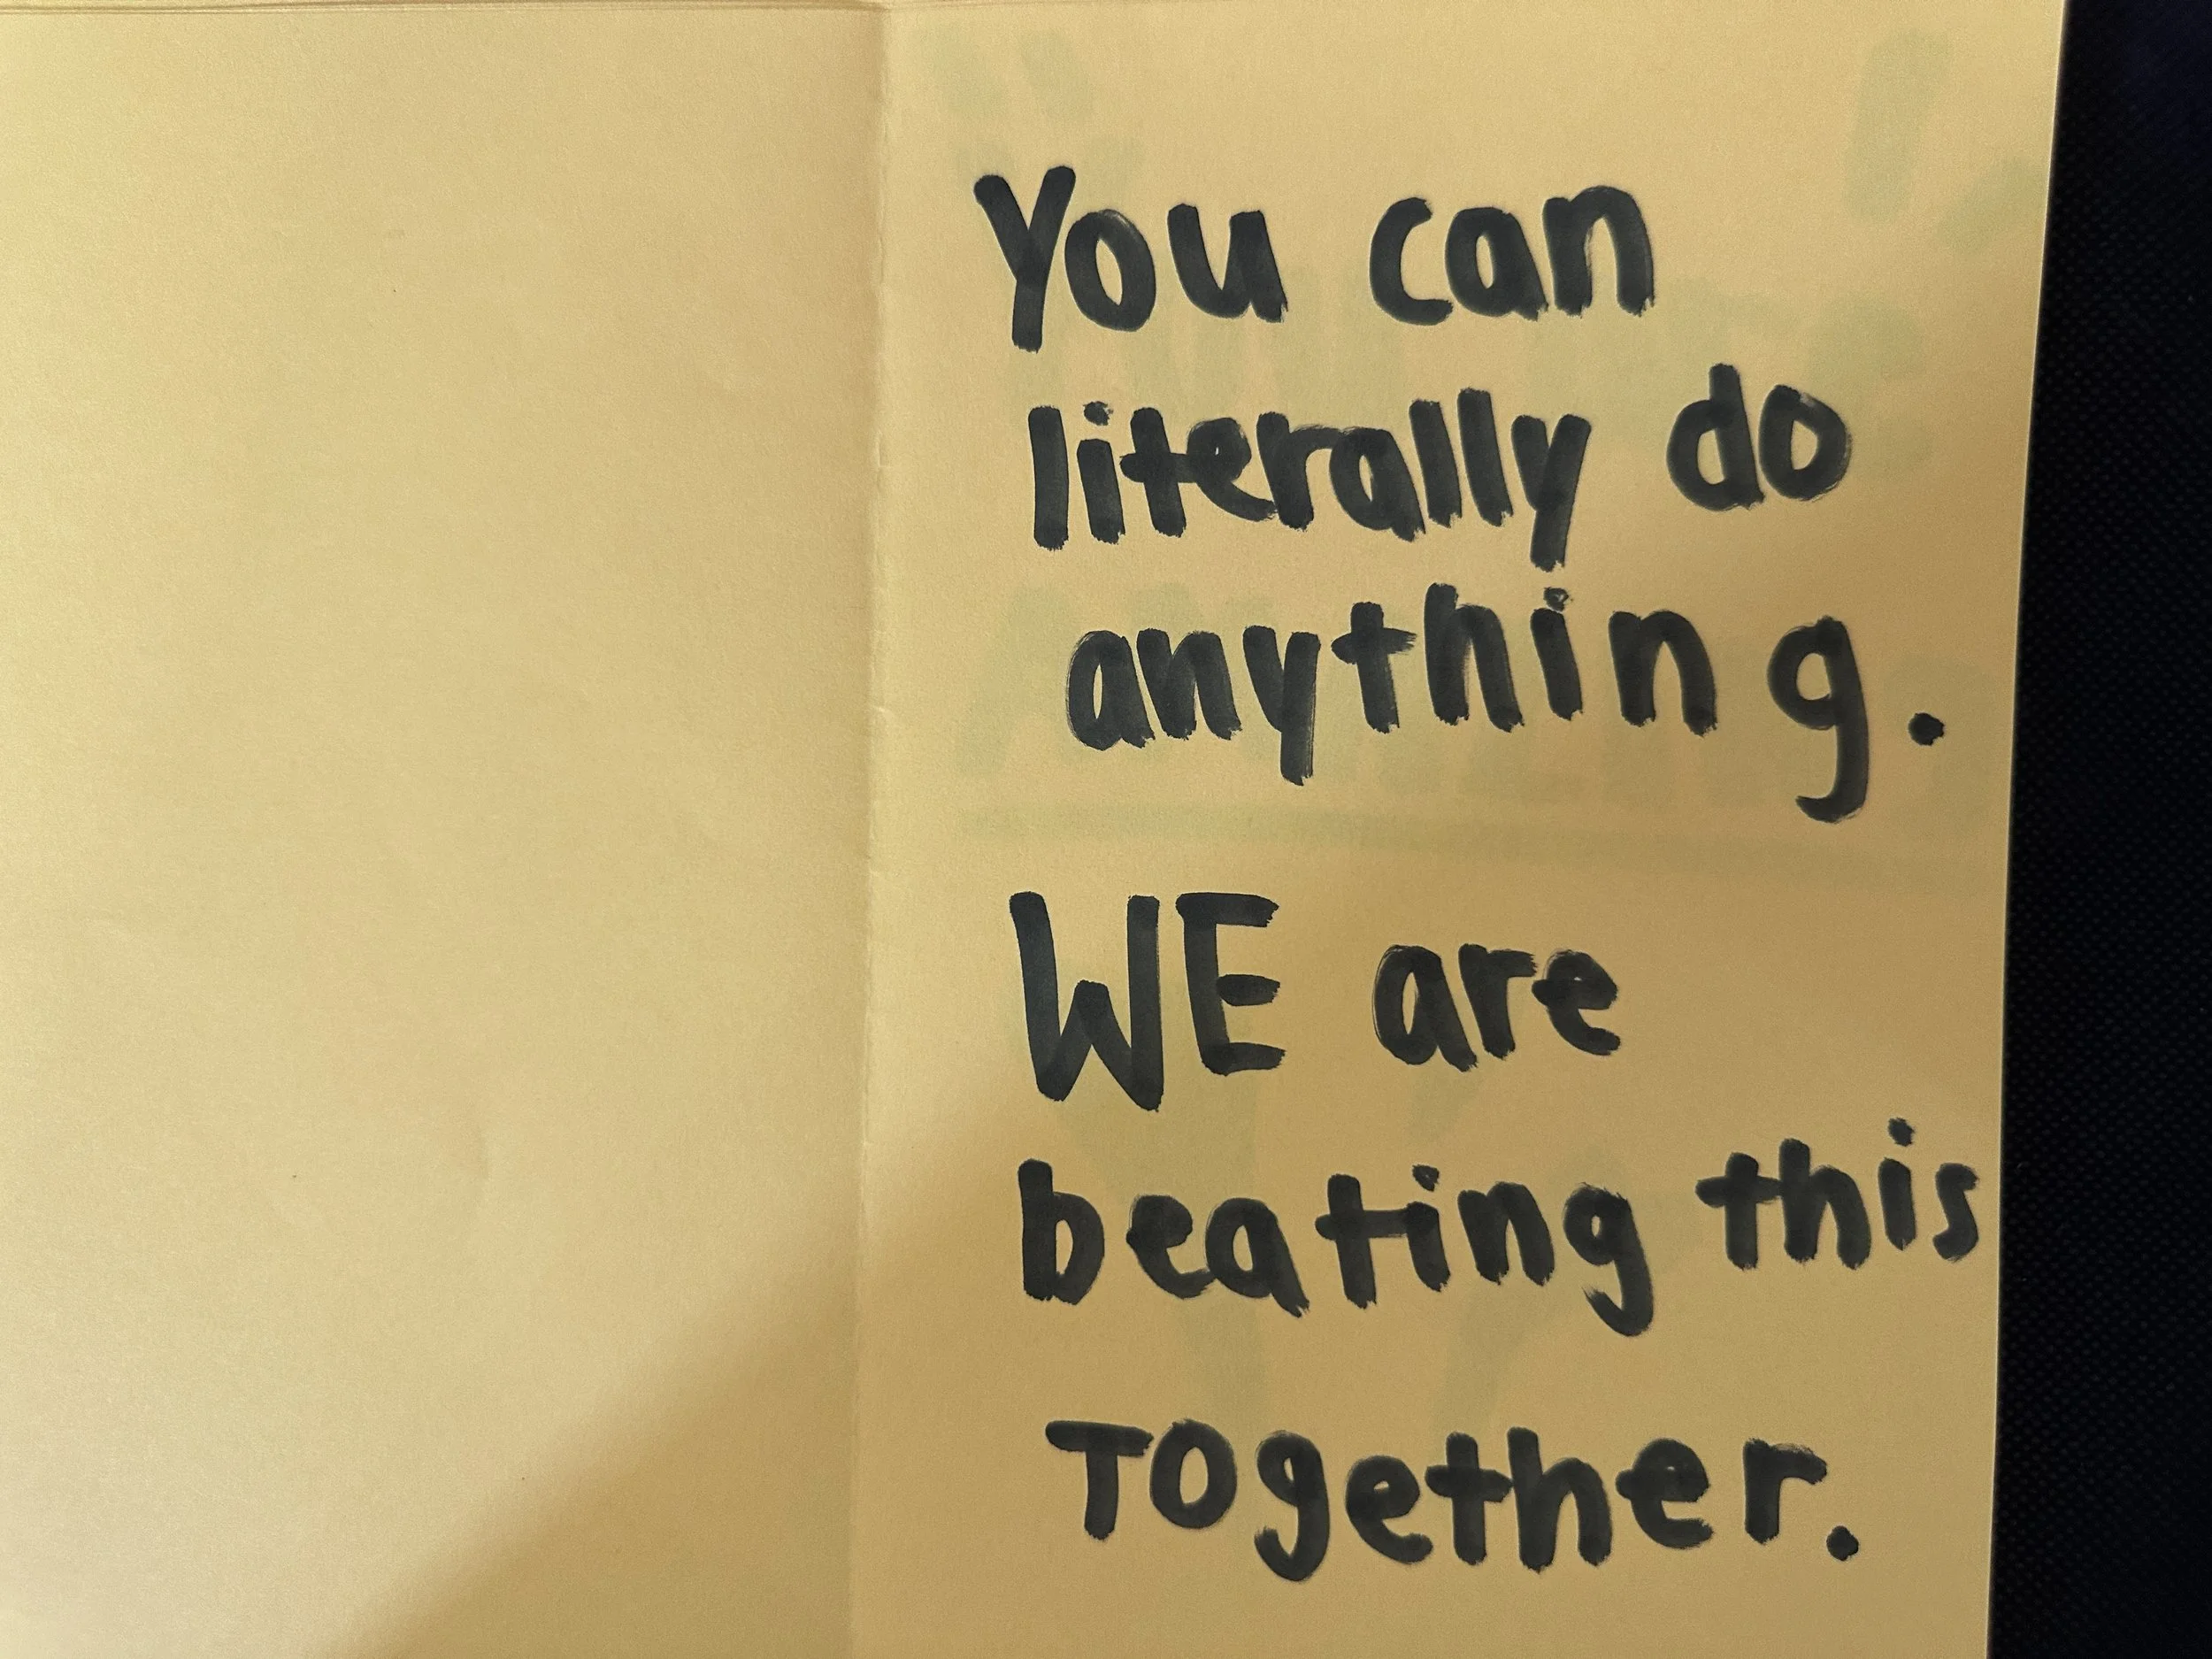 You can
literally do
anything.
WE are
beating this
Together.